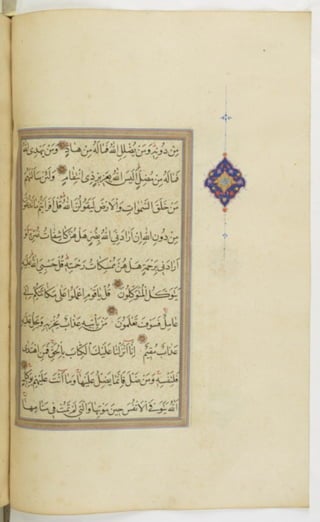 مِن دُونِهِ وَمَن يُضْلِلِ اللهُ فَمَا لَهُ مِنْ هَادٍ وَمَن يَهْدِ اللهُ
فَمَا لَهُ مِن مُضِلٍّ أَلَيْسَ اللهُ بِعَزِيزٍ ذِي انْتِقَامٍ وَلَئِن سَأَلْتَهُمْ
مَن خَلَقَ السَّمٰوَاتِ وَالْاَرْضَ لَيَقُولُنَّ اللهُ قُلْ أَفَرَأَيْتُم مَا تَدْعُونَ
مِن دُونِ اللهِ اِنْ اَرَادَنِيَ اللهُ بِضُرٍّ هَلْ هُنَّ كَاشِفَاتُ ضُرِّهِ أَوْ
اَرَادَنِي بِرَحْمَةٍ هَلْ هُنَّ مُمْسِكَاتُ رَحْمَتِهِ قُلْ حَسْبِيَ اللهُ عَلَيْهِ
يَتَوَكَّلُ الْمُتَوَكِّلُونَ قُلْ يَا قَوْمِ اعْمَلُوا عَلَى مَكَانَتِكُمْ اِنِّي
عَامِلٌ فَسَوْفَ تَعْلَمُونَ مَن يَأْتِيهِ عَذَابٌ يُخْزِيهِ وَيَحِلُّ عَلَيْهِ
عَذَابٌ مُقِيمٌ اِنَّا اَنْزَلْنَا عَلَيْكَ الْكِتَابَ بِالْحَقِّ فَمَنِ اهْتَدَى
فَلِنَفْسِهِ وَمَن ضَلَّ فَاِنَّمَا يَضِلُّ عَلَيْهَا وَمَا اَنْتَ عَلَيْهِمْ بِوَكِيلٍ
اَللهُ يَتَوَفَّى الْاَنْفُسَ حِينَ مَوْتِهَا وَالَّتِي لَمْ تَمُتْ فِي مَنَامِهَا